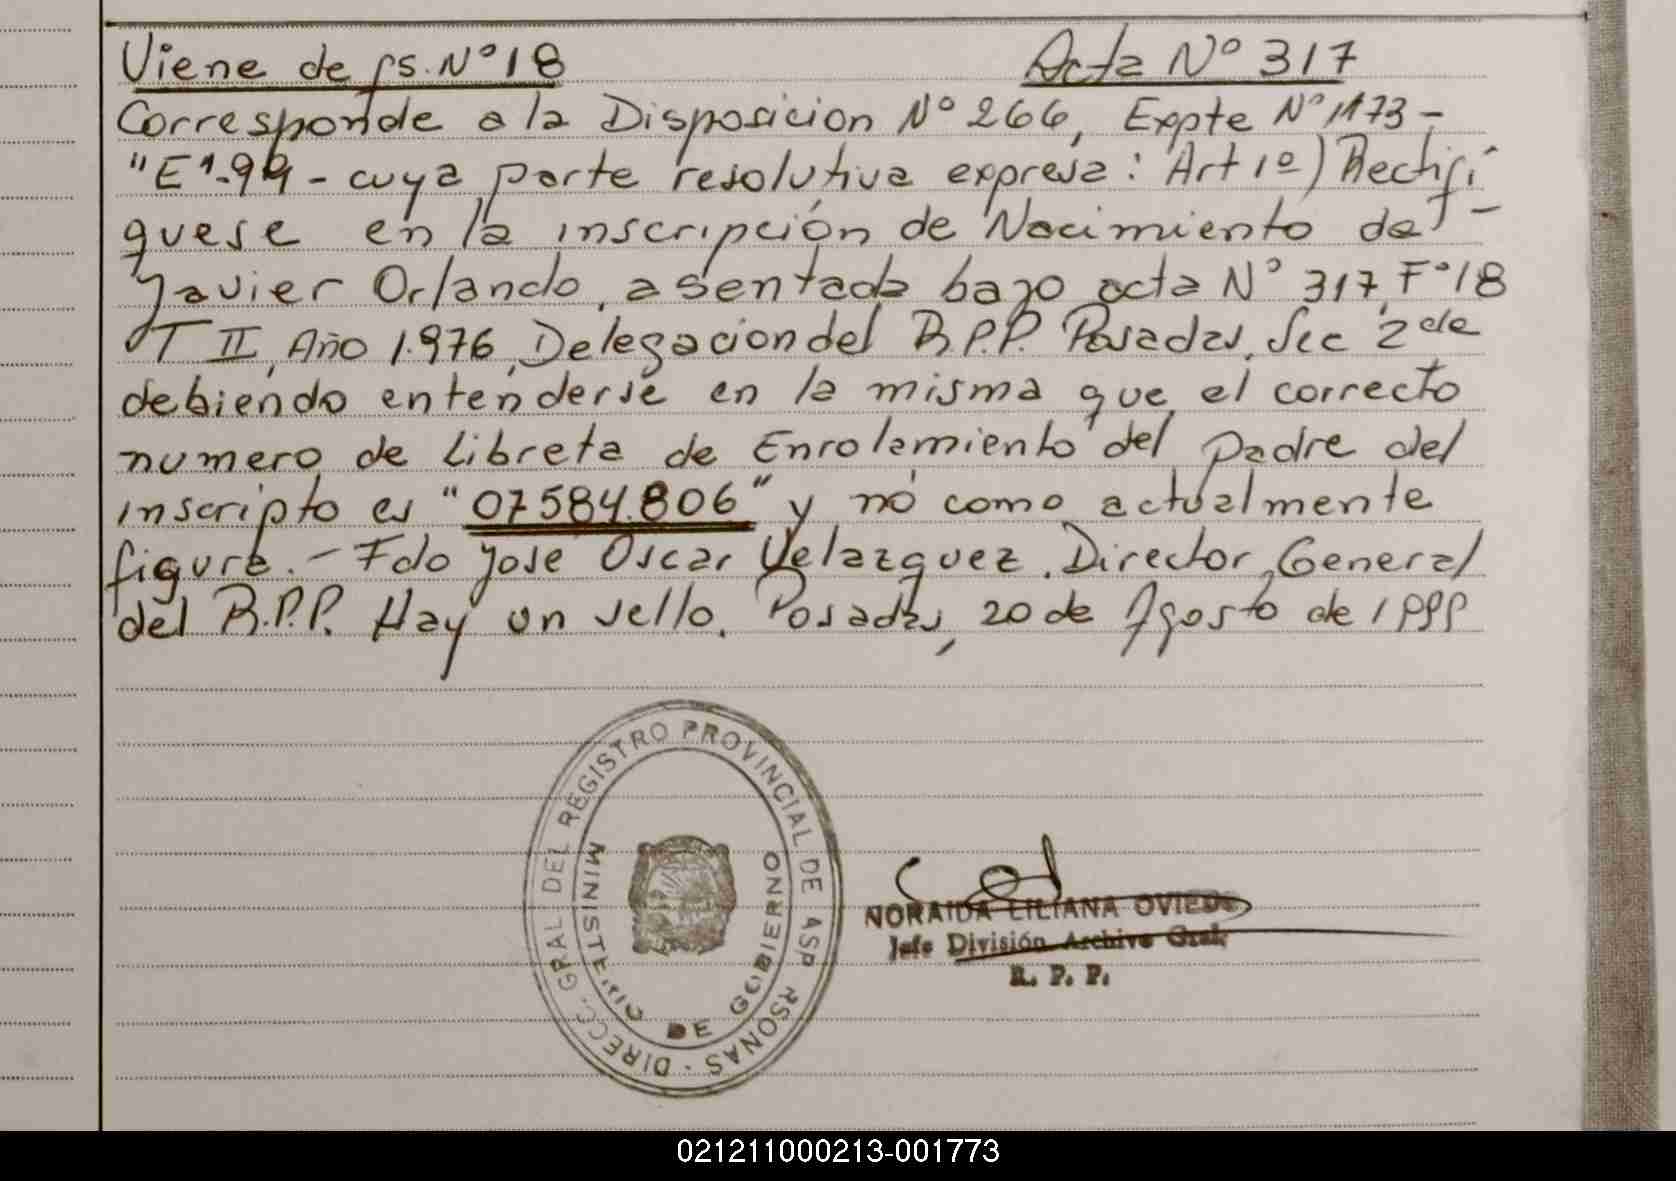 Viene de fs. Nº 18 Acta Nº 317
Corresponde a la Disposicion Nº 266, Expte Nº 1173-
"E"-99- cuya parte resolutiva expresa: Art 1º) Rectifi
quese en la inscripción de Nacimiento de -
Javier Orlando, asentada bajo acta Nº 317, Fº 18
T II, Año 1.976, Delegacion del R.P.P. Posadas, Sec 2da
debiendo entenderse en la misma que el correcto
numero de Libreta de Enrolamiento del padre del
inscripto es "07.584.806" y no como actualmente
figura.- Fdo Jose Oscar Velazquez. Director General
del R.P.P. Hay un sello. Posadas, 20 de Agosto de 1999
DIRECC. GRAL DEL REGISTRO PROVINCIAL DE ASP RSONAS -
MINISTERIO DE GOBIERNO
NORAIDA LILIANA OVIEDO
Jefe División Archivo Gral.
R. P. P.
021211000213-001773